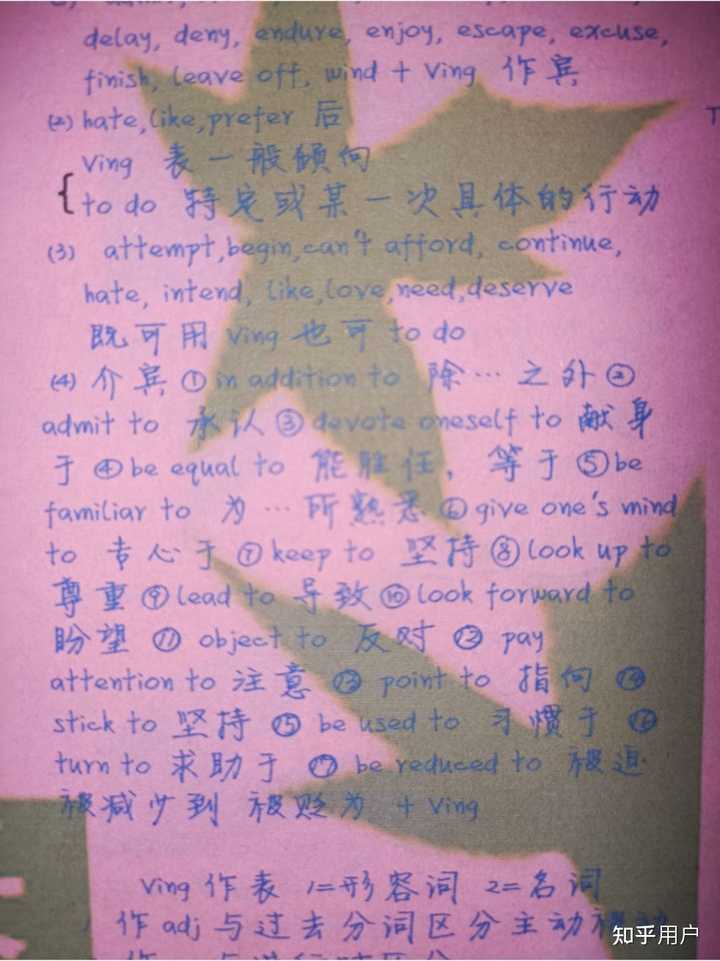 delay, deny, endure, enjoy, escape, excuse,
finish, leave off, wind + Ving 作宾
(2) hate, like, prefer 后
Ving 表一般倾向
{ to do 特定或某一次具体的行动
(3) attempt, begin, can't afford, continue,
hate, intend, like, love, need, deserve
既可用 Ving 也可 to do
(4) 介宾 ① in addition to 除…之外 ②
admit to 承认 ③ devote oneself to 献身
于 ④ be equal to 能胜任, 等于 ⑤ be
familiar to 为…所熟悉 ⑥ give one's mind
to 专心于 ⑦ keep to 坚持 ⑧ look up to
尊重 ⑨ lead to 导致 ⑩ look forward to
盼望 ⑪ object to 反对 ⑫ pay
attention to 注意 ⑬ point to 指向 ⑭
stick to 坚持 ⑮ be used to 习惯于 ⑯
turn to 求助于 ⑰ be reduced to 被迫
被减少到 被贬为 + Ving
Ving 作表 1=形容词 2=名词
作 adj 与过去分词区分主动被动
知乎用户